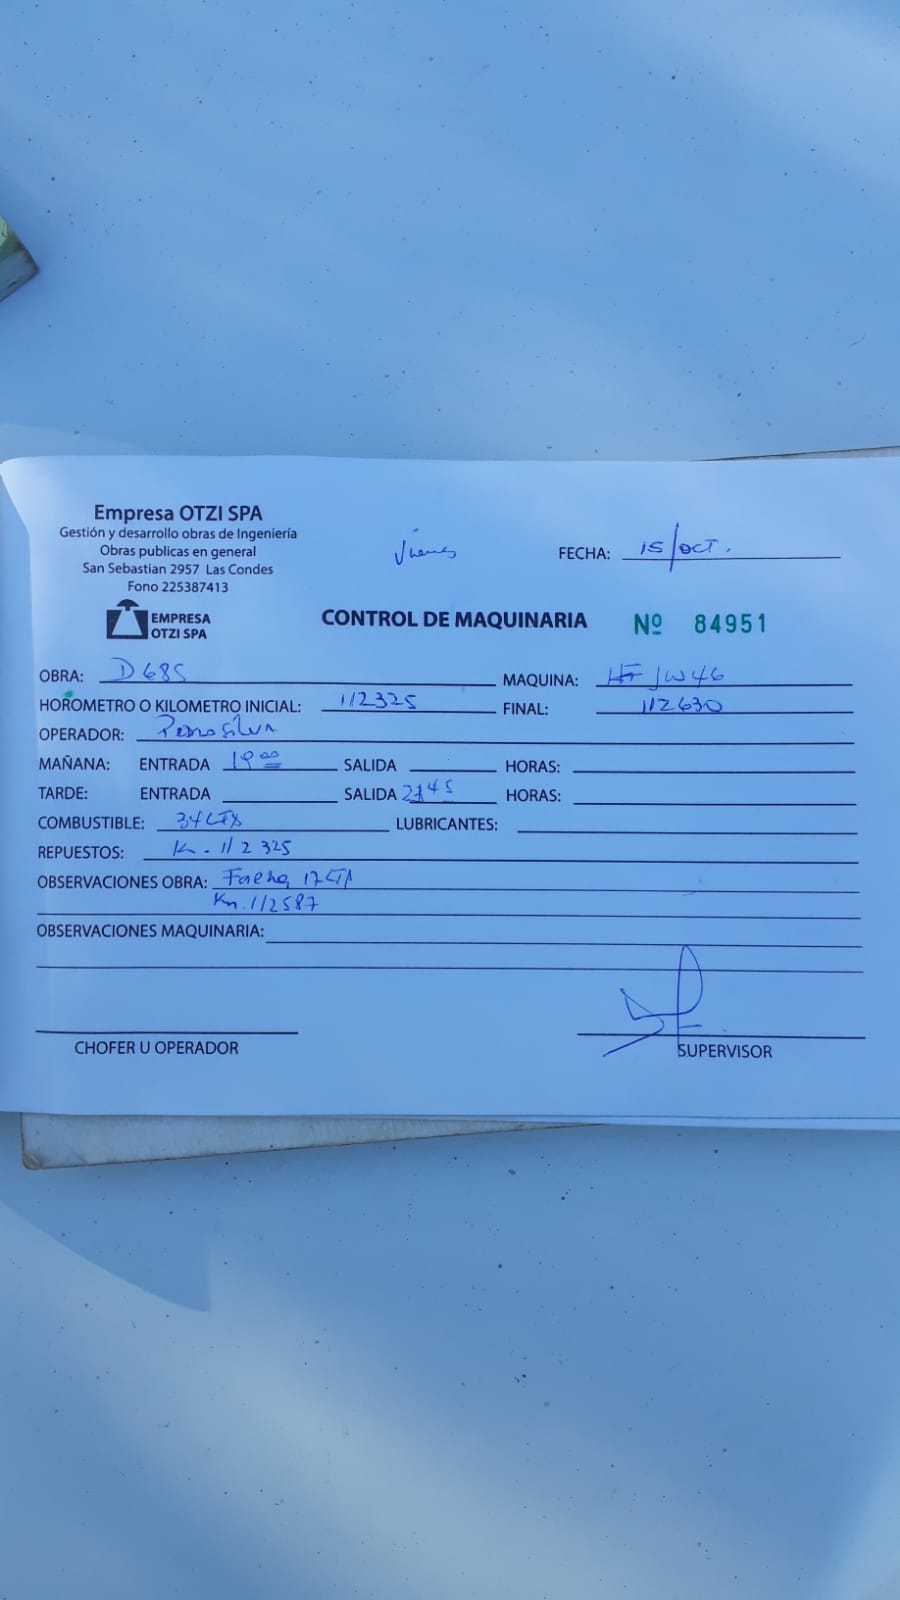 Empresa OTZI SPA
Gestión y desarrollo obras de Ingeniería
Obras publicas en general
San Sebastian 2957 Las Condes
Fono 225387413
EMPRESA
OTZI SPA
Viernes
FECHA: 15/OCT.
CONTROL DE MAQUINARIA Nº 84951
OBRA: D685 MAQUINA: HF JW46
HOROMETRO O KILOMETRO INICIAL: 112325 FINAL: 112630
OPERADOR: Pedro Silva
MAÑANA: ENTRADA 19:00 SALIDA HORAS:
TARDE: ENTRADA SALIDA HORAS:
COMBUSTIBLE: 34 LTS LUBRICANTES:
REPUESTOS: K. 112325
OBSERVACIONES OBRA: Faena 17 LT
Km. 112587
OBSERVACIONES MAQUINARIA:
CHOFER U OPERADOR
SUPERVISOR